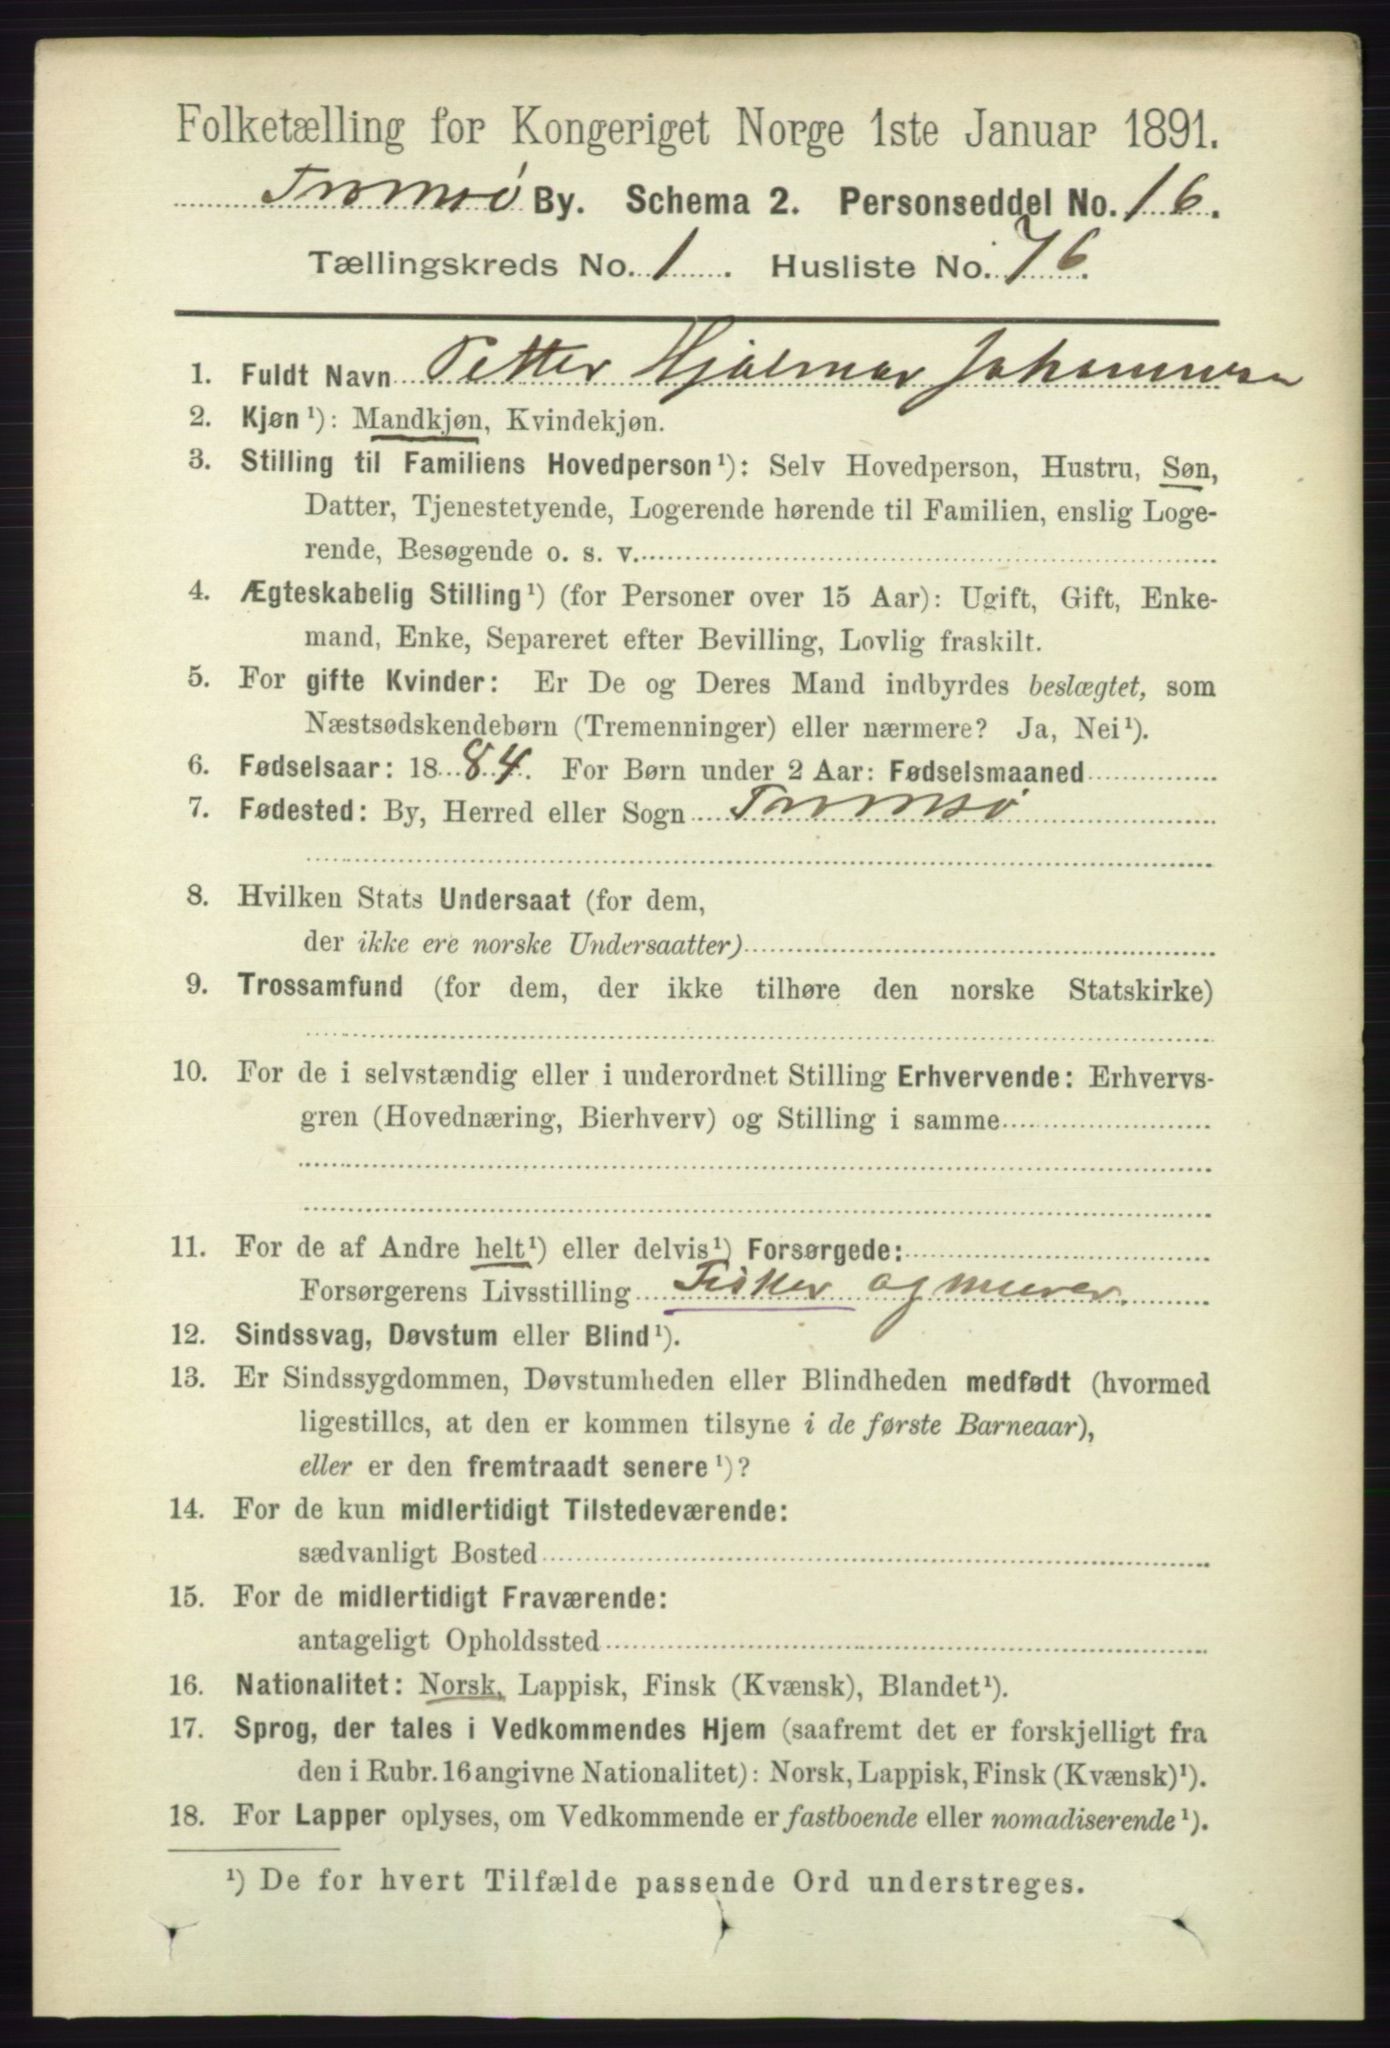 Folketælling for Kongeriget Norge 1ste Januar 1891.
Tromsø By. Schema 2. Personseddel No. 16.
Tællingskreds No. 1. Husliste No. 76.
1. Fuldt Navn Petter Hjalmar Johannesen
2. Kjøn¹): Mandkjøn, Kvindekjøn.
3. Stilling til Familiens Hovedperson¹): Selv Hovedperson, Hustru, Søn,
Datter, Tjenestetyende, Logerende hørende til Familien, enslig Loge-
rende, Besøgende o. s. v.
4. Ægteskabelig Stilling¹) (for Personer over 15 Aar): Ugift, Gift, Enke-
mand, Enke, Separeret efter Bevilling, Lovlig fraskilt.
5. For gifte Kvinder: Er De og Deres Mand indbyrdes beslægtet, som
Næstsødskendebørn (Tremenninger) eller nærmere? Ja, Nei¹).
6. Fødselsaar: 1884. For Børn under 2 Aar: Fødselsmaaned
7. Fødested: By, Herred eller Sogn Tromsø
8. Hvilken Stats Undersaat (for dem,
der ikke ere norske Undersaatter)
9. Trossamfund (for dem, der ikke tilhøre den norske Statskirke)
10. For de i selvstændig eller i underordnet Stilling Erhvervende: Erhvervs-
gren (Hovednæring, Bierhverv) og Stilling i samme
11. For de af Andre helt¹) eller delvis¹) Forsørgede:
Forsørgerens Livsstilling Fisker og murer.
12. Sindssvag, Døvstum eller Blind¹).
13. Er Sindssygdommen, Døvstumheden eller Blindheden medfødt (hvormed
ligestilles, at den er kommen tilsyne i de første Barneaar),
eller er den fremtraadt senere¹)?
14. For de kun midlertidigt Tilstedeværende:
sædvanligt Bosted
15. For de midlertidigt Fraværende:
antageligt Opholdssted
16. Nationalitet: Norsk, Lappisk, Finsk (Kvænsk), Blandet¹).
17. Sprog, der tales i Vedkommendes Hjem (saafremt det er forskjelligt fra
den i Rubr. 16 angivne Nationalitet): Norsk, Lappisk, Finsk (Kvænsk)¹).
18. For Lapper oplyses, om Vedkommende er fastboende eller nomadiserende¹).
¹) De for hvert Tilfælde passende Ord understreges.